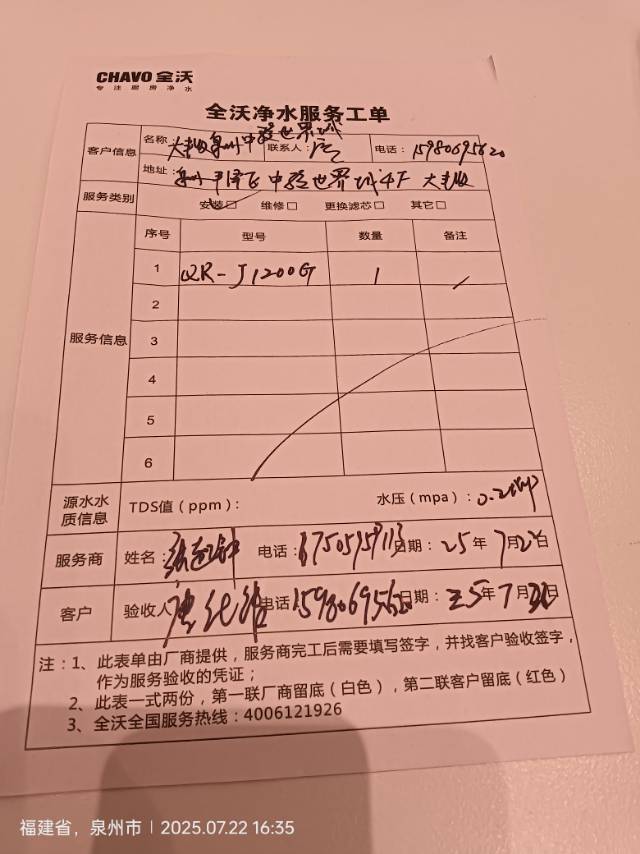 CHAVO 全沃
专注厨房净水
全沃净水服务工单
客户信息 名称: 泉州中骏世界城 联系人: 电话: 15980695620
地址: 泉州 中骏世界城4F
服务类别 安装□ 维修□ 更换滤芯□ 其它□
服务信息 序号 型号 数量 备注
1 QR-J1200G 1 /
2
3
4
5
6
源水水质信息 TDS值（ppm）: 水压（mpa）:
服务商 姓名: 电话: 日期: 25年7月22日
客户 验收人 电话 15980695620 日期: 25年7月22日
注:1、此表单由厂商提供，服务商完工后需要填写签字，并找客户验收签字，
作为服务验收的凭证；
2、此表一式两份，第一联厂商留底（白色），第二联客户留底（红色）
3、全沃全国服务热线:4006121926
福建省，泉州市 | 2025.07.22 16:35